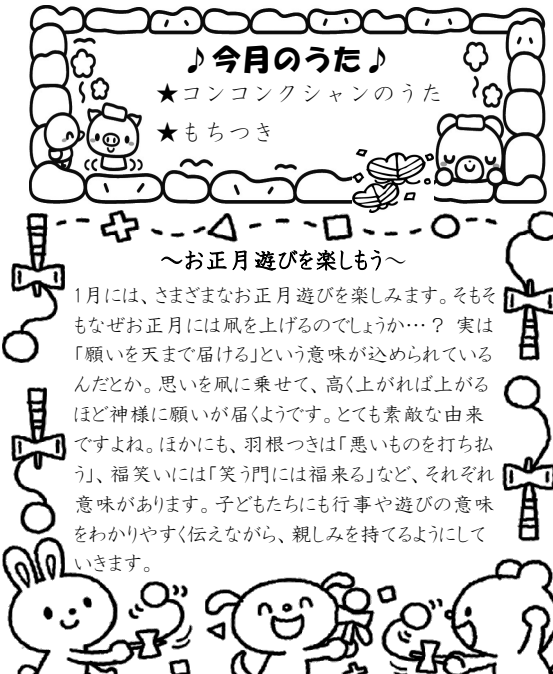 ♪今月のうた♪
★コンコンクシャンのうた
★もちつき
～お正月遊びを楽しもう～
1月には、さまざまなお正月遊びを楽しみます。そもそ
もなぜお正月には凧を上げるのでしょうか…？ 実は
「願いを天まで届ける」という意味が込められている
んだとか。思いを凧に乗せて、高く上がれば上がる
ほど神様に願いが届くようです。とても素敵な由来
ですよね。ほかにも、羽根つきは「悪いものを打ち払
う」、福笑いには「笑う門には福来る」など、それぞれ
意味があります。子どもたちにも行事や遊びの意味
をわかりやすく伝えながら、親しみを持てるようにして
いきます。